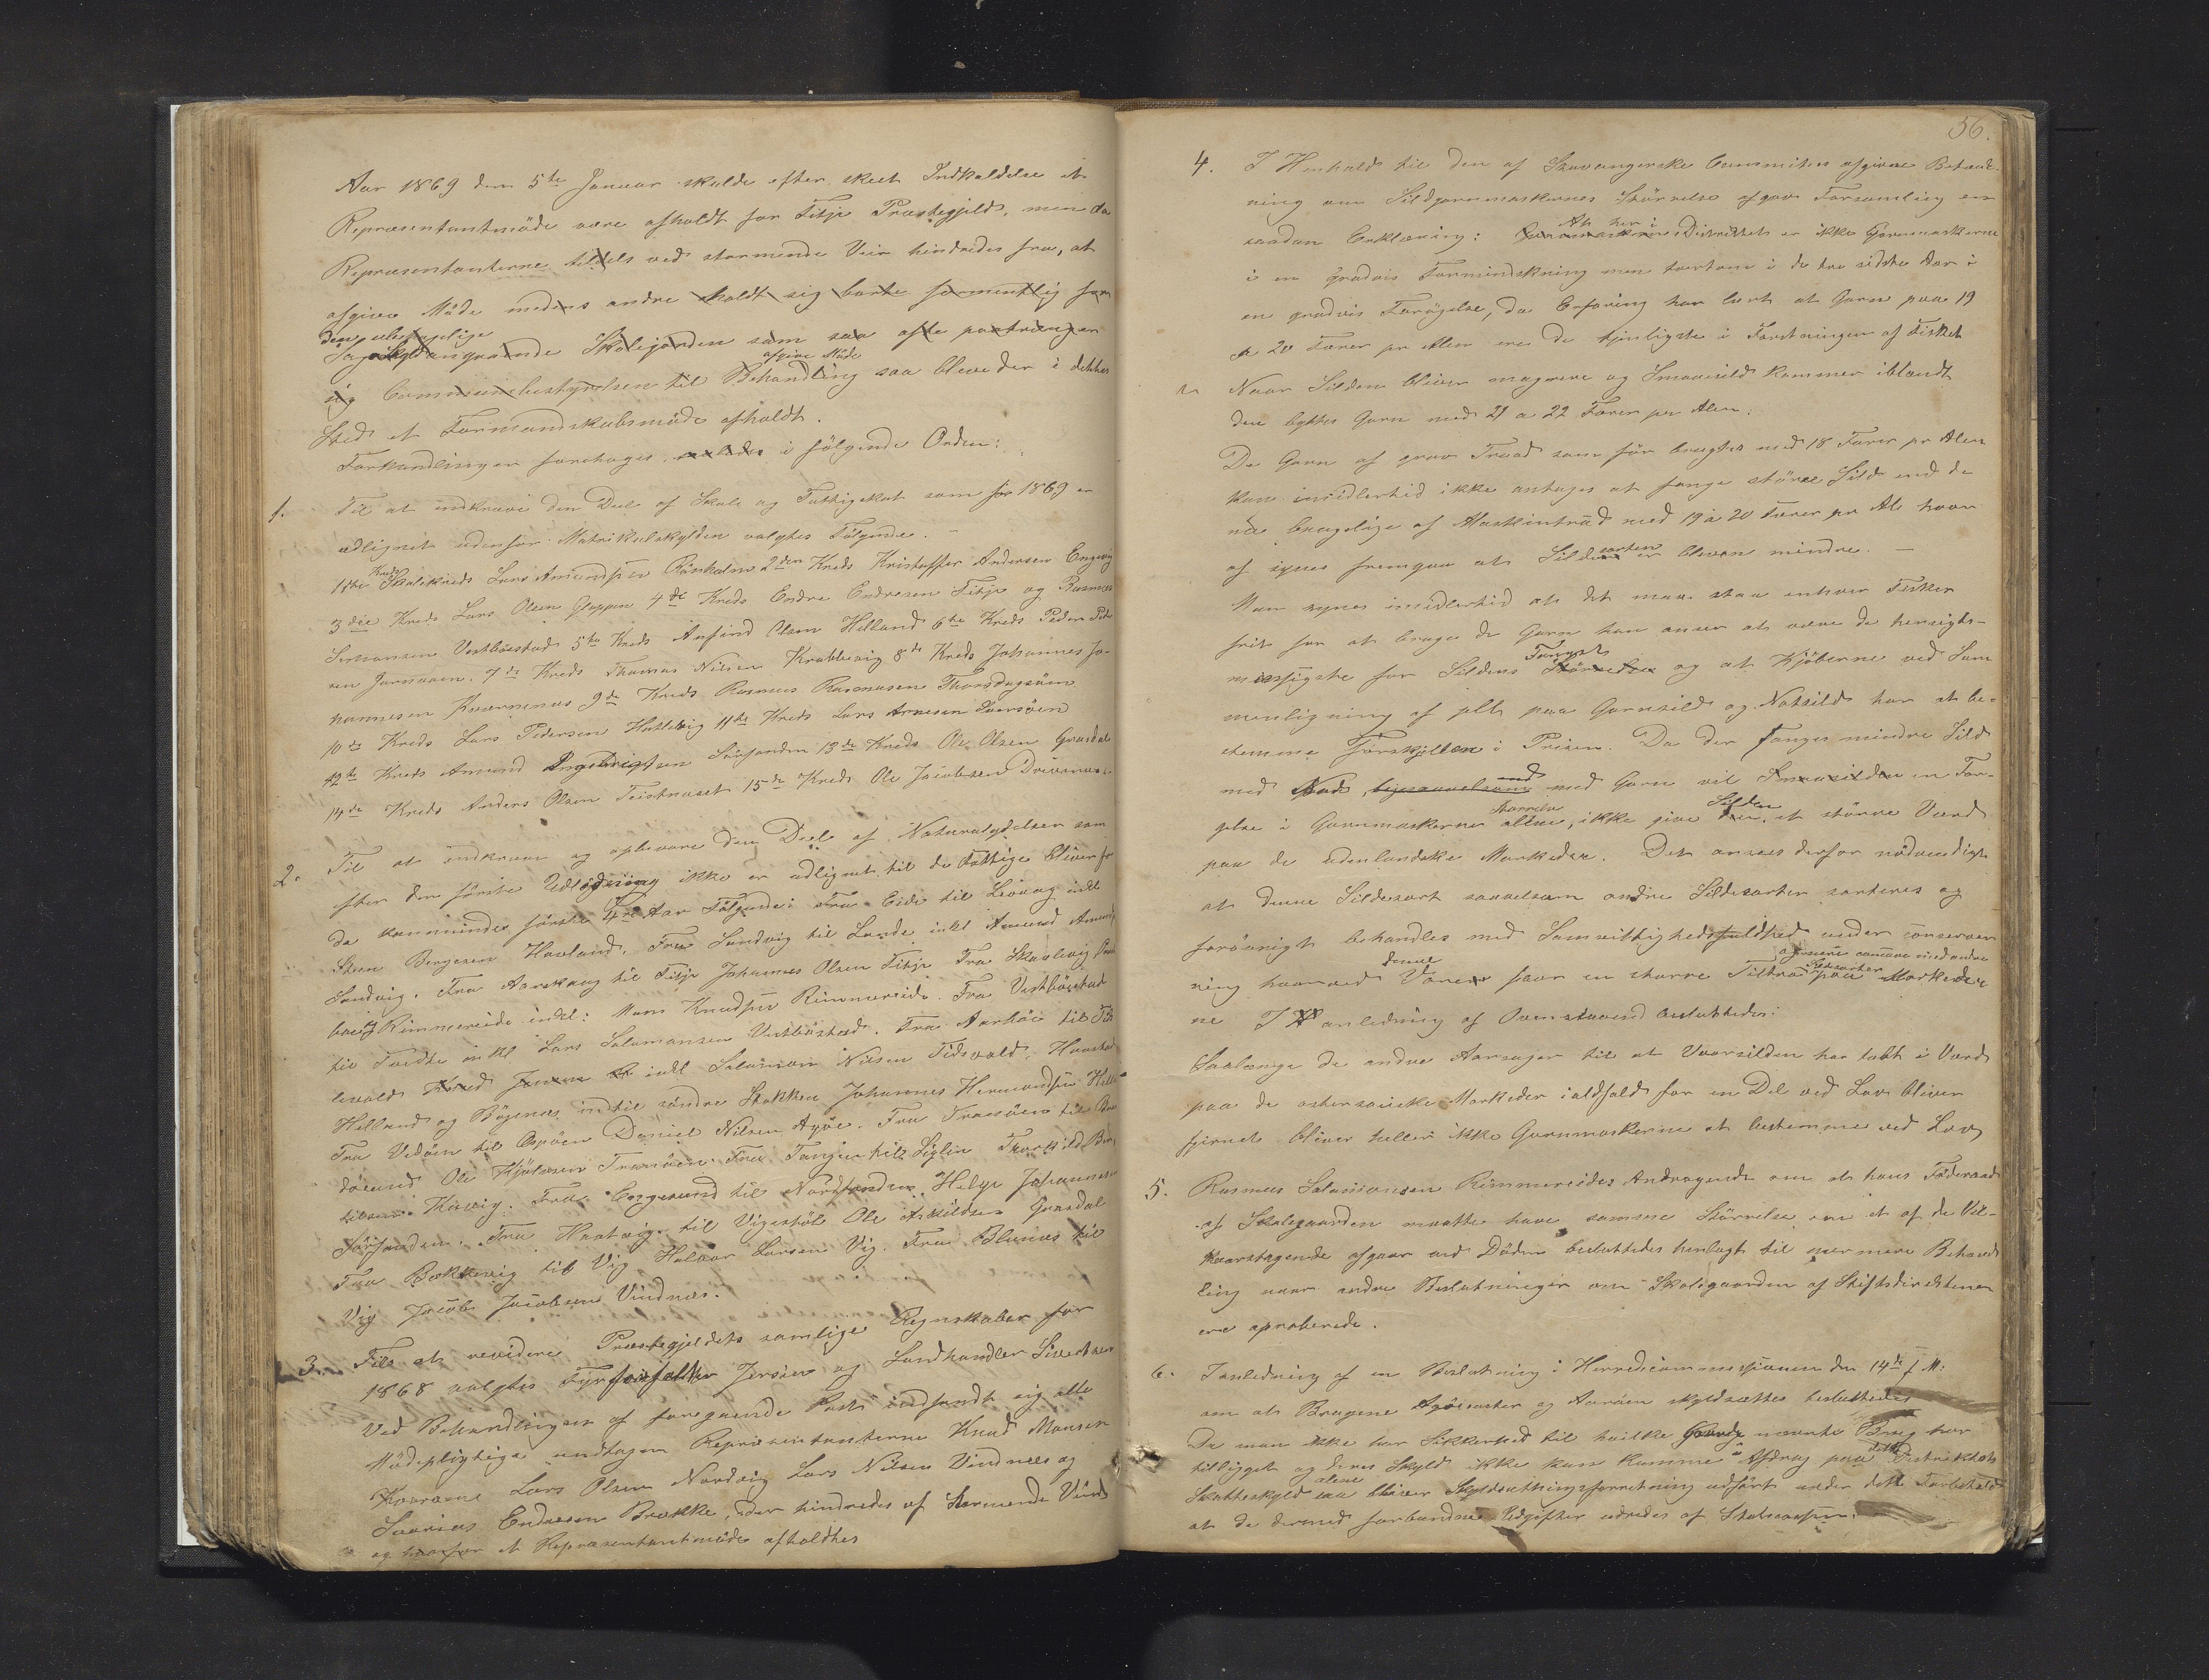 Aar 1869 den 5te Januar skulde efter skeet Indkaldelse et
Repræsentantmöde være afholdt for Fitje Præstegjeld, men da
Repræsentanterne tildels ved stormende Veir hindredes fra, at
afgive Möde medens andre holdt sig borte formentlig for
den ubehagelige
Sag angaaende Skolejorden som saa ofte paatrænger
afgive Möde
sig Communebestyrelsen til Behandling saa bleve der i dettes
Sted et Formandskabsmöde afholdt.
Forhandlingen foretoges saaledes i fölgende Orden:
1. Til at indkræve den Deel af Skole og Fattigskat som for 1869 er
udlignet udenfor Matrikulskylden valgtes Fölgende.
Kreds
1ste Skolekreds Lars Amundsen Rönholm 2den Kreds Kristoffer Andersen Engevig
3die Kreds Lars Olsen Gloppen 4de Kreds Endre Endresen Fitje og Rasmus
Simonsen Vestböstad 5te Kreds Anfind Olsen Helland 6te Kreds Peder Peder
sen 7de Kreds Thomas Nilsen Krabbevig 8de Kreds Johannes Jo-
hannesen Kværnenæs 9de Kreds Rasmus Rasmusen Thorsdagsöen
10de Kreds Lars Pedersen Hatlevig 11te Kreds Lars Arnesen
12te Kreds Amund Ingebrigtsen Sörsanden 13de Kreds Ole Olsen Grasdal
14de Kreds Anders Olsen Teistnæset 15de Kreds Ole Jacobsen
2. Til at indkræve og opbevare den Deel af Naturalydelsen som
efter den förste Udligning ikke er udlignet til de Fattige bliver for
de kommende förste 4re Aar Fölgende: Fra Eide til Levaag inkl
Steen Bergesen Havland. Fra Sandvig til Lande inkl Amund Amunds
Sandvig. Fra Aarskaug til Fitje Johannes Olsen Fitje Fra Skarlevig
Rimmereide inkl: Mons Knudsen Rimmereide. Fra Vestböstad
til Tvedte inkl Lars Salomonsen Vestböstad. Fra Aarhöie til
inkl Salomon Nilsen Tidsvold,
Helland og Böjenes indtil söndre Stokken Johannes Hermandsen
Fra Vedöen til Aspöen Daniel Nilsen Agöe. Fra Tranöien til
Ole Kjölesen Tranöien. Fra Tangen til Siglin Thorkild
Kisevig. Fra Engesund til Nordsanden Helge Johannesen
Sörsanden. Fra Haatvig til Vigestöl Ole Askildsen Grasdal
Fra Bækkevig til Vig Halvor Larsen Vig. Fra Blænes til
Vig Jacob Jacobsen Vindnæs.
3. Til at revidere Præstegjeldets samlige Regnskaber for
1868 valgtes Jersin og Landhandler Sivertsen
Ved Behandlingen af foregaaende Post indfandt sig alle
Mödepligtige undtagen Repræsentanterne Knud Monsen
Lars Olsen Nordvig Lars Nilsen Vindnæs og
Severius Endresen Brække, der hindredes af stormende Veir
og hvorfor et Repræsentantmöde afholdtes
56.
4. I Henhold til den af Stavangerske Committes afgivne Betænk-
ning om Sildgarnmaskernes Störrelse afgav Forsamling en
At her i
saadan Erklæring: Garnmaskerne Distriktet er ikke Garnmaskerne
i en gradvis Formindskning men tvertom i de tre sidste Aar i
en gradvis Forögelse, da Erfaring har lært at Garn paa 19
a 20 Farer pr Alen ere de tjenligste i Foretningen af Fisket.
Naar Silden bliver magrere og Smaasild kommer iblandt
den bøttes Garn med 21 a 22 Farer pr Alen.
De Garn af grov Traad som för brugtes med 18 Farer pr Alen
kan imidlertid ikke antages at fange störrer Sild end de
nu brugelige af Maskintraad med 19 à 20 Farer pr Al: hvor
sorten
af synes fremgaa at Silden er bleven mindre. —
Man synes imidlertid at det maa staa enhver Fisker
frit for at bruge de Garn han anser at være de hensigts-
Fangst
mæssigste for Sildens Störrelse og at Kjöberne ved Sam
menligning af pllt paa Garnsild og Notsild har at be-
stemme Forskjellen i Prisen. Da der fanges mindre Sild
med
med Nod, ligesaavelsom med Garn vil Smaasilden en For-
Störrelse Silden
gelse i Garnmaskerne allene, ikke give den, et större Værd
paa de udenlandske Markeder. Det ansees derfor nödvendigt
at denne Sildesort saavelsom andre Sildesorter sorteres og
forövrigt behandles med Samvittighedsfuldhed under conserver
denne
ning hvorved Varer faar en större Tiltro paa Markeder
ne I Anledning af Ovenstaaend besluttedes:
Saalænge de andre Aarsager til at Vaarsilden har tabt i Værd
paa de östersöiske Markeder ialdfald for en Del ved Lov bliver
fjernet bliver heller ikke Garnmaskerne at bestemme ved Lov
5. Rasmus Salomonsen Rimmereides Andragende om at hans Föderaad
af Skolegaarden maatte have samme Störrelse om et af de Vil-
kaarstagende afgaar ved Döden besluttedes henlagt til nærmere Behand
ling naar andre Beslutninger om Skolegaarden af Stiftsdirektionen
ere aproberede.
6. I anledning af en Beslutning i Herredscommissionen den 14de f M:
om at Brugene Agöeoster og Aaröen skyldsættes besluttedes
Da man ikke har Sikkerhed til hvilke Gaarde nævnte Brug har
dette
tilligget og deres Skyld ikke kan komme i Afdrag paa Distriktets
alene
Skatteskyld saa bliver Skyldsætningsforretning udfört under det Forbehold
at de dermed forbundne Udgifter udredes af Statscassen.